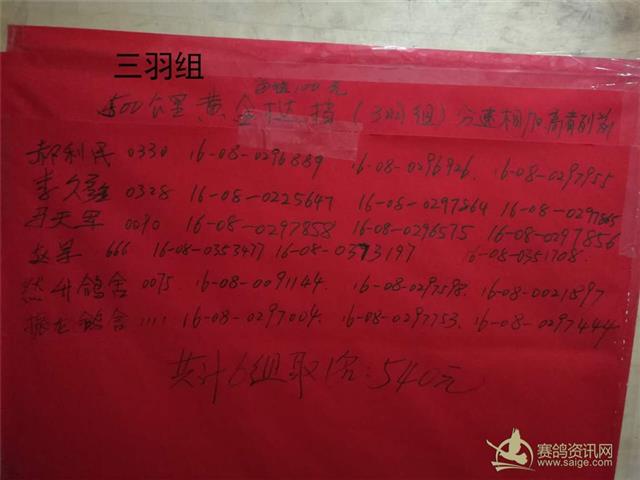 三羽组
每组100元
500公里黄金搭挡(3羽组)分速相加高者列前
郝利民 0330 16-08-0296889 16-08-0296926. 16-08-0297955
李久强 0328 16-08-0225647 16-08-0297864 16-08-0297865
丹天军 0090 16-08-0297858 16-08-0296575 16-08-0297856
赵军 666 16-08-0353477 16-08-0373197 16-08-0351708
然升鸽舍 0075. 16-08-0091144. 16-08-0297598. 16-08-0021897
振龙鸽舍 1111 16-08-0297004. 16-08-0297753. 16-08-0297444
共计6组取1名:540元
赛鸽资讯网
www.saige.com